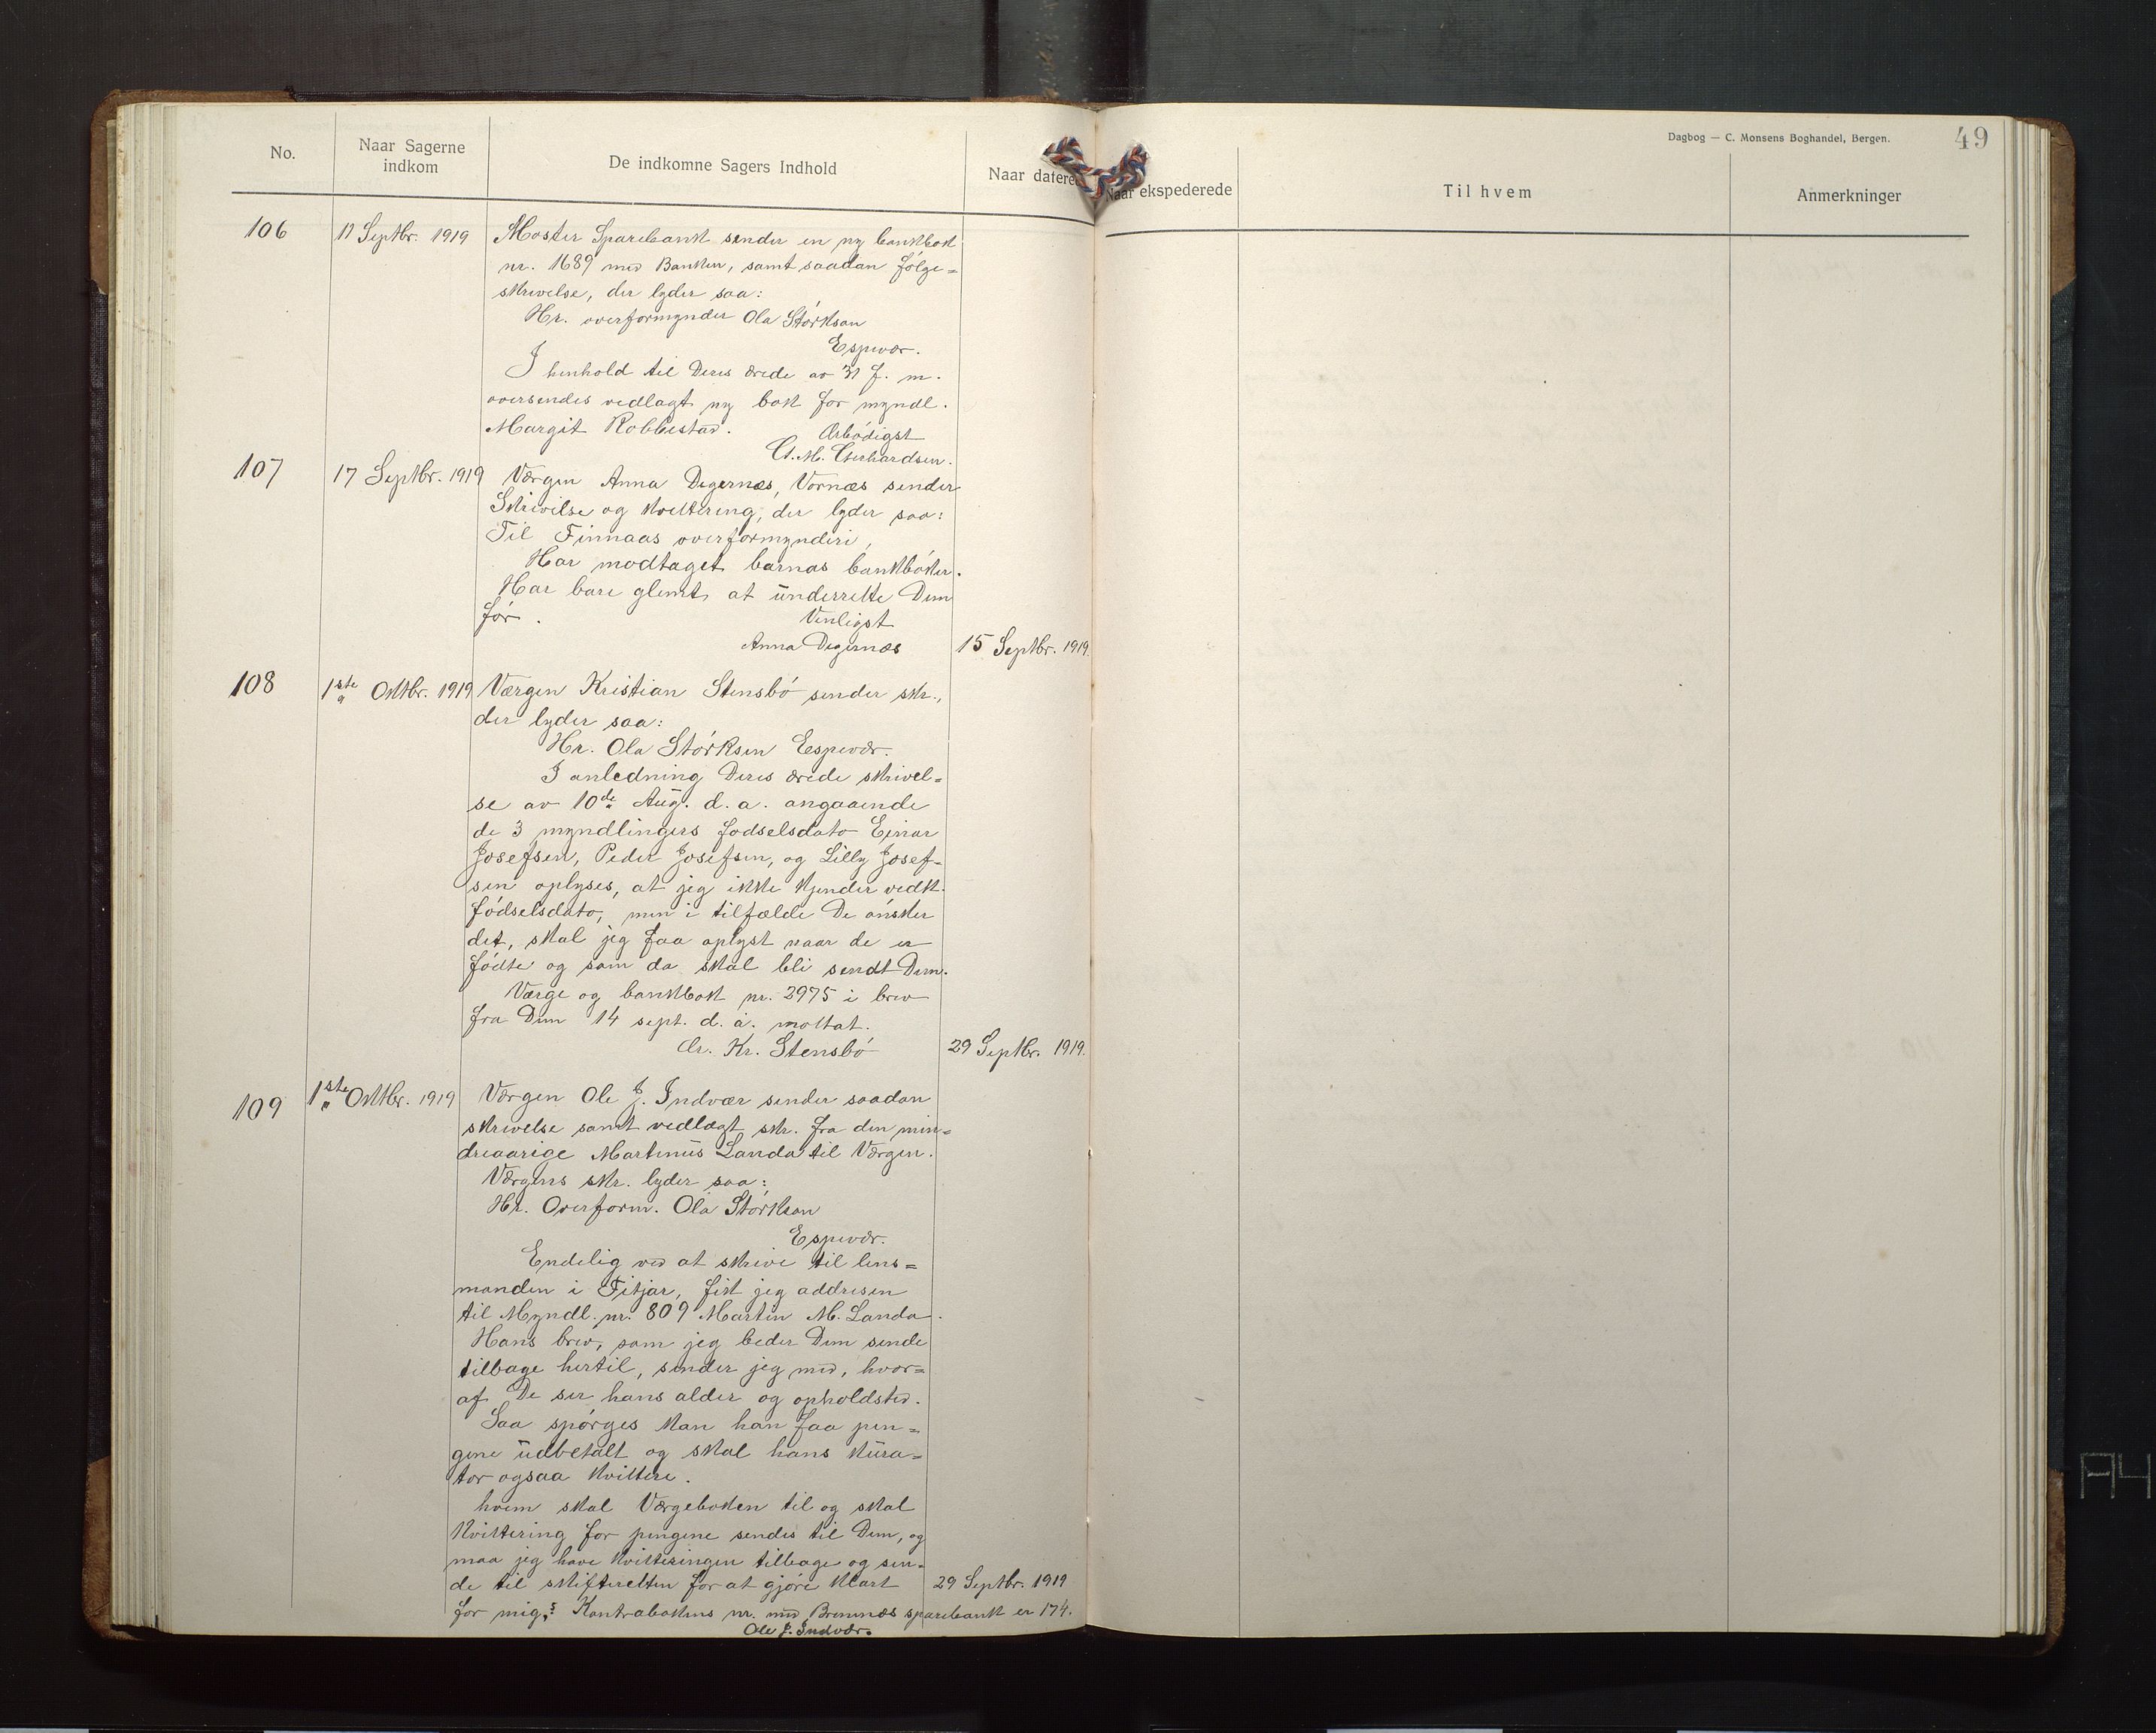 No.
Naar Sagerne
indkom
De indkomne Sagers Indhold
Naar datere
106
11 Septbr. 1919
Moster Sparebank sender en ny bankbok
nr. 1689 med Banken, samt saadan følge=
skrivelse, der lyder saa:
Hr. overformynder Ola Størkson
Espevær.
I henhold til Deres ærede av 31 f. m.
oversendes vedlagt ny bok for myndl.
Margit Robbestad.
Ærbødigst
M. Gerhardsen.
107
17 Septbr. 1919
Værgen Anna Degernæs, Vornæs sender
Skrivelse og kvittering, der lyder saa:
Til Finnaas overformynderi,
Har modtaget barnas bankbøker.
Har bare glemt at underrette Dem
før.
Venligst
Anna Degernæs
15 Septbr. 1919.
108
1ste Oktbr. 1919
Værgen Kristian Stensbø sender skr.,
der lyder saa:
Hr. Ola Størksen Espevær.
I anledning Deres ærede skrivel=
se av 10de Aug. d. a. angaaende
de 3 myndlingers fodselsdato Einar
Josefsen, Peder Josefsen, og Lilly Josef=
sen oplyses, at jeg ikke kjender vedk.
fødselsdato, men i tilfælde De ønsker
det, skal jeg faa oplyst naar de er
fødte og som da skal bli sendt Dem.
Værge og bankbok nr. 2975 i brev
fra Dem 14 sept. d. å. mottat.
Ær. Kr. Stensbø
29 Septbr. 1919.
109
1ste Oktbr. 1919
Værgen Ole J. Indvær sender saadan
skrivelse samt vedlagt skr. fra den min=
dreaarige Martinus Landa til Værgen.
Værgens skr. lyder saa:
Hr. Overform. Ola Størkson
Espevær.
Endelig ved at skrive til lens=
manden i Fitjar, fik jeg addresen
til Myndl. nr. 809 Martin M. Landa.
Hans brev, som jeg beder Dem sende
tilbage hertil, sender jeg med, hvor=
af De ser hans alder og opholdsted.
Saa spørges kan han faa pen=
gene udbetalt og skal hans kura=
tor ogsaa kvittere.
hvem skal Værgeboken til og skal
Kvittering for pengene sendes til Dem, og
maa jeg have kvitteringen tilbage og sen=
de til skifteretten for at gjøre klart
29 Septbr. 1919
for mig? Kontrabokens nr. med Bremnes sparebank er 174.
Ole J. Indvær.
Dagbog — C. Monsens Boghandel, Bergen.
49
Naar ekspederede
Til hvem
Anmerkninger
A4